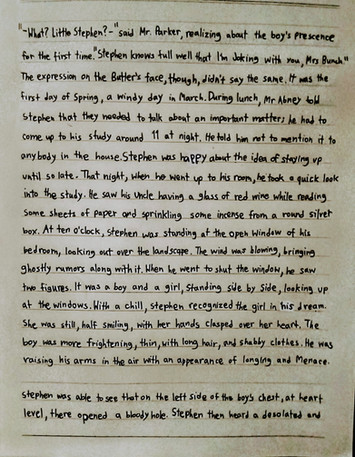 "-What? Little Stephen?-" said Mr. Parker, realizing about the boy's prescence
for the first time. "Stephen knows full well that I'm Joking with you, Mrs Bunch"
The expression on the Butler's face, though, didn't say the same. It was the
first day of Spring, a windy day in March. During lunch, Mr Abney told
Stephen that they needed to talk about an important matter; he had to
come up to his study around 11 at night. He told him not to mention it to
anybody in the house. Stephen was happy about the idea of staying up
until so late. That night, when he went up to his room, he took a quick look
into the study. He saw his Uncle having a glass of red wine while reading
some sheets of paper and sprinkling some incense from a round silver
box. At ten o'clock, Stephen was standing at the open window of his
bedroom, looking out over the landscape. The wind was blowing, bringing
ghostly rumors along with it. When he went to shut the window, he saw
two figures. It was a boy and a girl, standing side by side, looking up
at the windows. With a chill, Stephen recognized the girl in his dream.
She was still, half smiling, with her hands clasped over her heart. The
boy was more frightening, thin, with long hair, and shabby clothes. He was
raising his arms in the air with an appearance of longing and Menace.
Stephen was able to see that on the left side of the boy's chest, at heart
level, there opened a bloody hole. Stephen then heard a desolated and